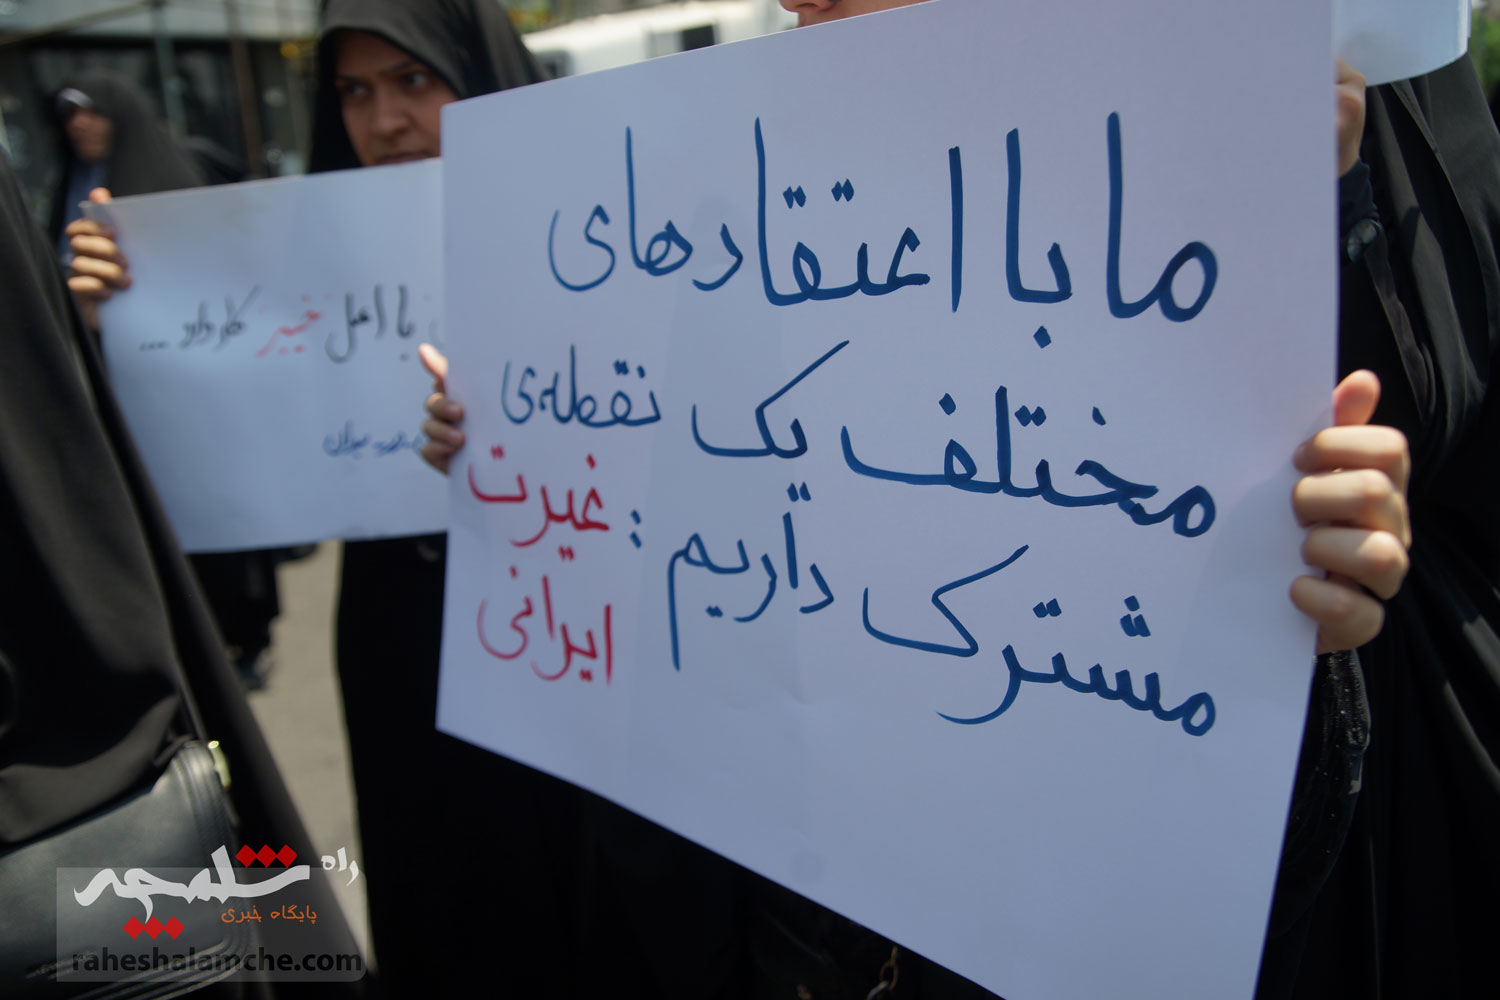 ما با اعتقادهای
مختلف یک نقطه‌ی
مشترک داریم : غیرت
ایرانی
با اهل خیبر کار دارد ...
راه شلمچه
پایگاه خبری
raheshalamche.com